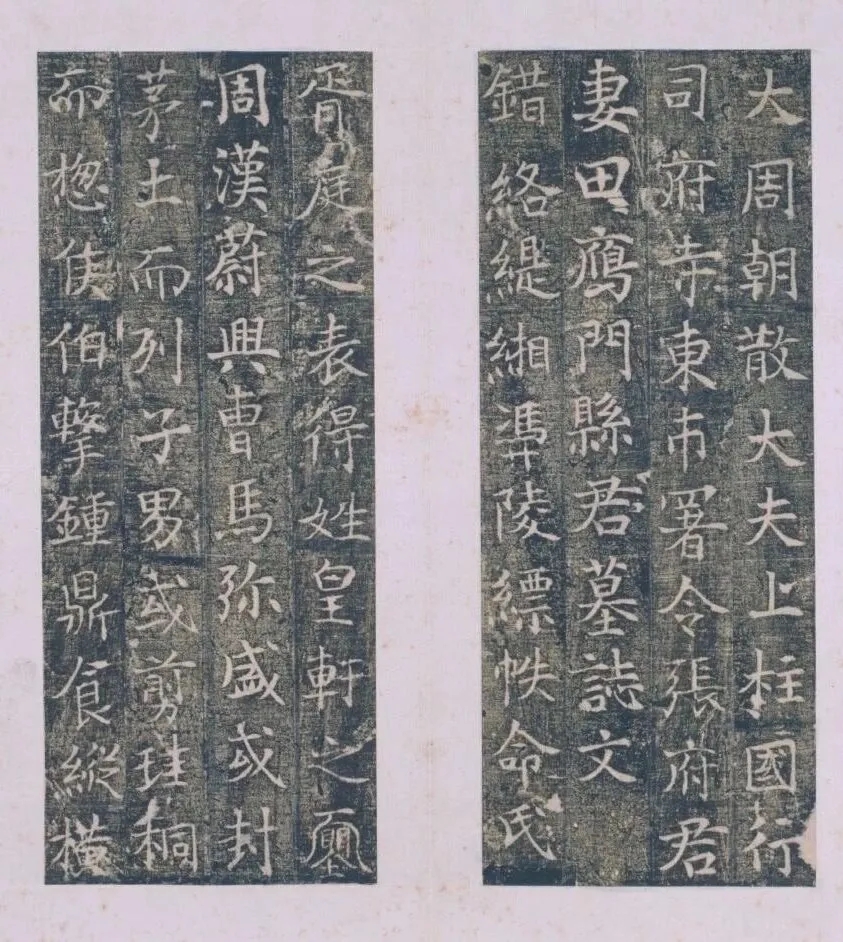 大周朝散大夫上柱國行
司府寺東市署令張府君
妻田鴈門縣君墓誌文
錯絡緹緗溤陵縹帙命氏
胥庭之表得姓皇軒之
周漢蔚興曹馬弥盛或封
茅土而列子男或剪珪桐
而揔侯伯擊鍾鼎食縱橫